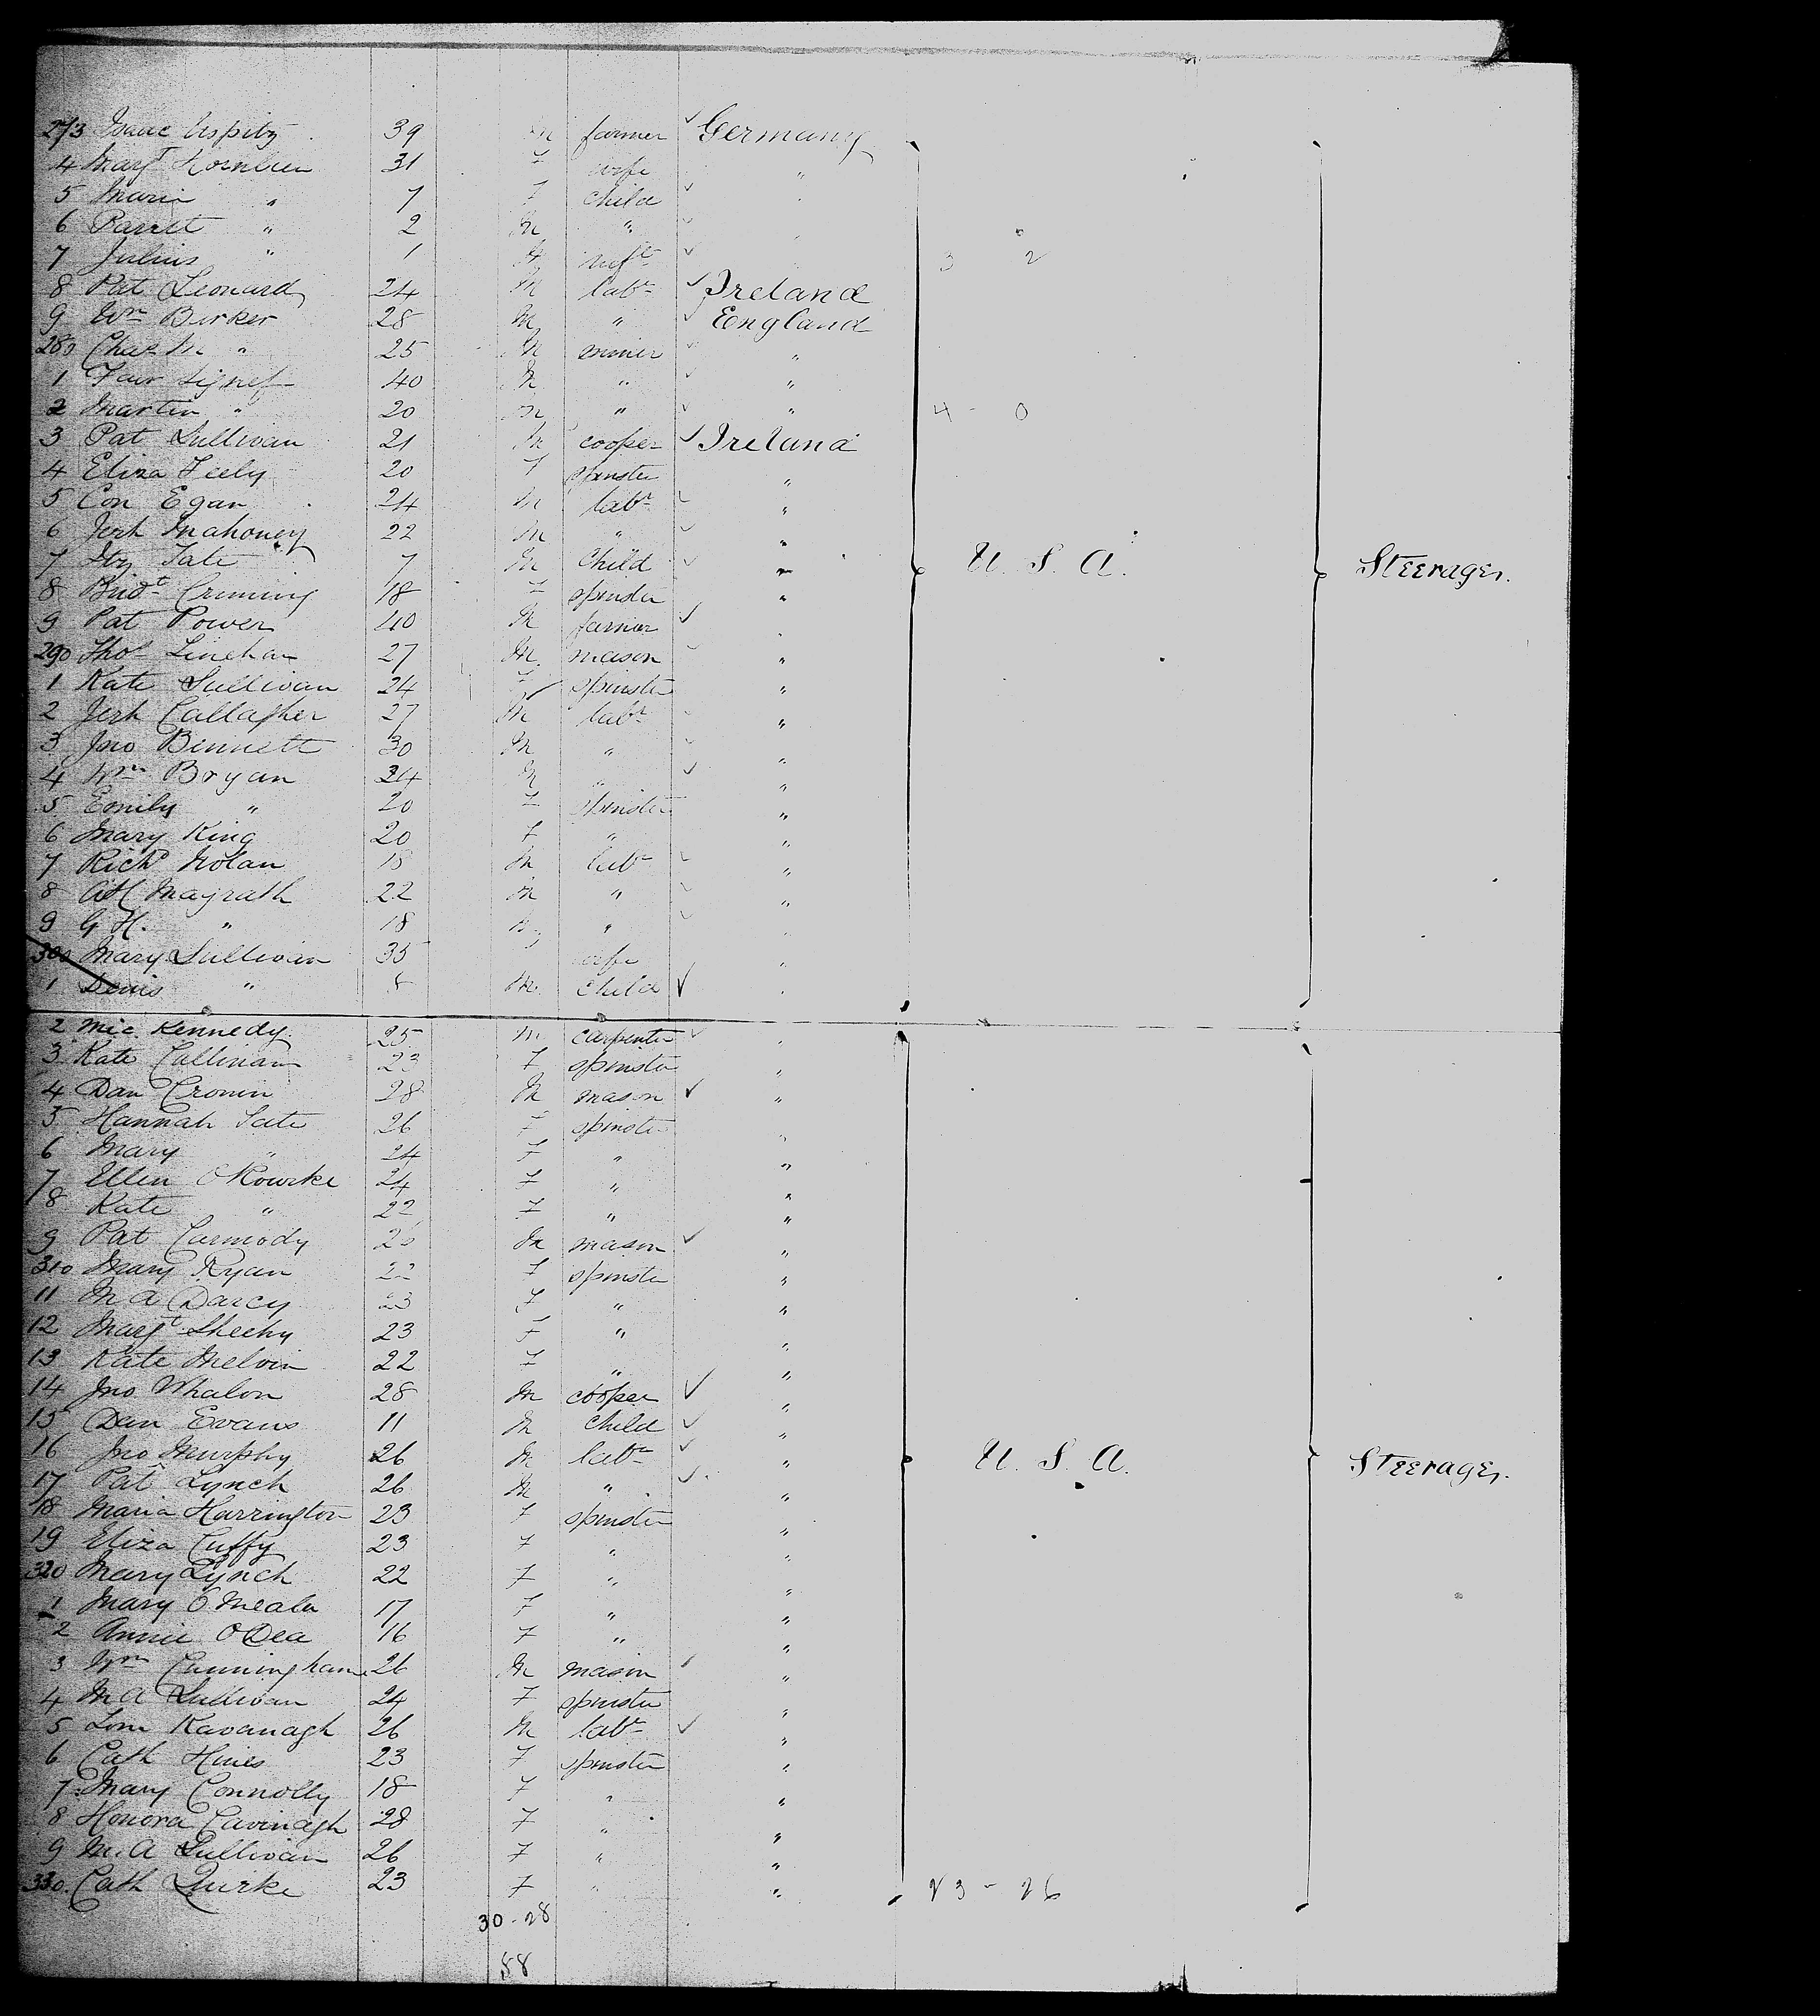 273 Isaac Uspitz 39 M farmer ✓ Germany
4 Margt Hornbun 31 F wife "
5 Marie " 7 F child ✓
6 " 2 M " ✓
7 Julius " 1 M inft ✓ 3 2
8 Pat Leonard 24 M labr ✓ Ireland
9 Wm Burker 28 M " ✓ England
280 Chas M " 25 M miner ✓ "
1 40 M " ✓ "
2 Martin " 20 M " ✓ " 4 - 0
3 Pat Sullivan 21 M cooper ✓ Ireland
4 Eliza Feely 20 F spinster "
5 Con Egan 24 M labr ✓ "
6 Jerh Mahoney 22 M " ✓ "
7 Tate 7 M Child ✓ " U. S. A. Steerage.
8 Bridt 18 F spinster "
9 Pat Power 40 M farmer ✓
290 Thos Linehan 27 M mason ✓ "
1 Kate Sullivan 24 F spinster "
2 Jerh Callagher 27 M labr ✓ "
3 Jno Bennett 30 M " ✓ "
4 Wm Bryan 24 M " ✓ "
5 Emily " 20 F spinster "
6 Mary King 20 F " "
7 Richd Nolan 18 M labr ✓ "
8 Magrath 22 M " ✓ "
9 G H. " 18 M " ✓
300 Mary Sullivan 35 wife "
1 Denis " 8 M child ✓
2 Mic Kennedy 25 M carpenter ✓
3 Kate Cullinan 23 F spinster "
4 Dan Cronin 28 M mason ✓ "
5 Hannah Tate 26 F spinster "
6 Mary " 24 F " "
7 Ellen O'Rourke 24 F " "
8 Kate " 22 F " "
9 Pat Carmody 26 M mason ✓ "
310 Mary Ryan 22 F spinster "
11 M A Darcy 23 F " "
12 Margt Sheehy 23 F " "
13 Kate Melvin 22 F " "
14 Jno Whalon 28 M cooper ✓ "
15 Dan Evans 11 M child ✓ "
16 Jno Murphy 26 M labr ✓ " U. S. A. Steerage.
17 Pat Lynch 26 M " ✓ "
18 Maria Harrington 23 F spinster "
19 Eliza Cuffy 23 F " "
320 Mary Lynch 22 F " "
1 Mary O'Meala 17 F " "
2 Annie O'Dea 16 F " "
3 Wm Cunningham 26 M mason ✓ "
4 M A Sullivan 24 F spinster "
5 Kavanagh 26 M labr ✓ "
6 Cath Hines 23 F spinster "
7 Mary Connolly 18 F " "
8 Honora Cavinagh 28 F " "
9 M. A Sullivan 26 F " "
330. Cath Quirke 23 F " " 23 - 26
30 - 28
58